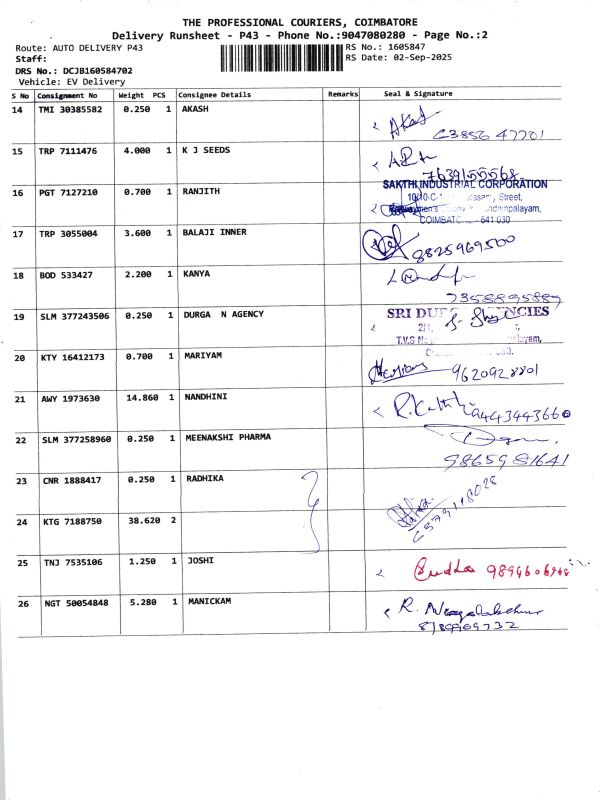 THE PROFESSIONAL COURIERS, COIMBATORE
Delivery Runsheet - P43 - Phone No.:9047080280 - Page No.:2
Route: AUTO DELIVERY P43 RS No.: 1605847
Staff: RS Date: 02-Sep-2025
DRS No.: DCJB160584702
Vehicle: EV Delivery
S No Consignment No Weight PCS Consignee Details Remarks Seal & Signature
14 TMI 30385582 0.250 1 AKASH
15 TRP 7111476 4.000 1 K J SEEDS
7639155568
16 PGT 7127210 0.700 1 RANJITH SAKTHI INDUSTRIAL CORPORATION
Street,
COIMBATORE 641 030
17 TRP 3055004 3.600 1 BALAJI INNER
8825969500
18 BOD 533427 2.200 1 KANYA
7358895889
19 SLM 377243506 0.250 1 DURGA N AGENCY SRI
T.V.S
20 KTY 16412173 0.700 1 MARIYAM
9620928801
21 AWY 1973630 14.860 1 NANDHINI
9443443660
22 SLM 377258960 0.250 1 MEENAKSHI PHARMA
9865981641
23 CNR 1888417 0.250 1 RADHIKA
6379118028
24 KTG 7188750 38.620 2
25 TNJ 7535106 1.250 1 JOSHI
26 NGT 50054848 5.280 1 MANICKAM